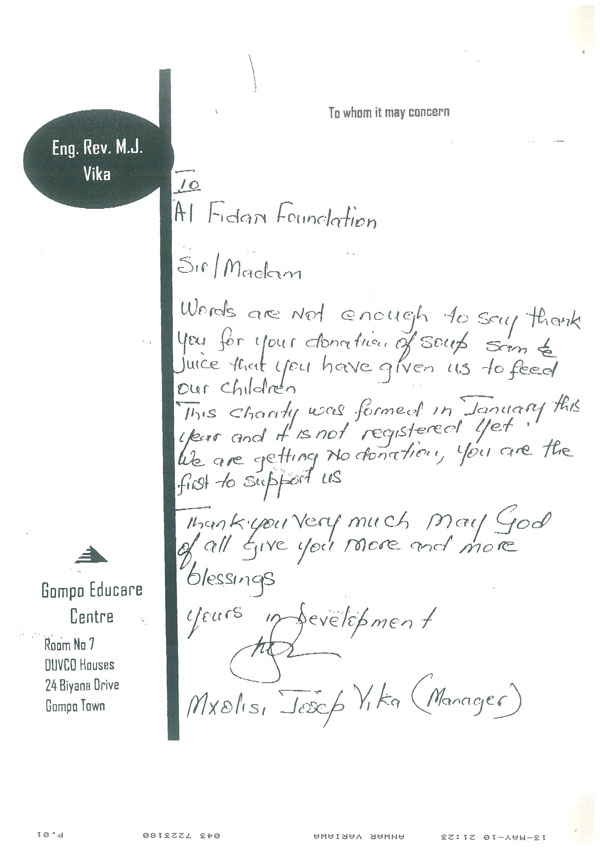 To whom it may concern
Eng. Rev. M.J.
Vika
To
Al Fidan Foundation
Sir/Madam
Words are Not enough to say thank
you for your donation of soup sam &
Juice that you have given us to feed
our children
This charity was formed in January this
year and it is not registered yet.
We are getting No donation, you are the
first to support us
Thank you very much May God
of all give you more and more
blessings
yours in Development
Mxolisi Josep Vika (Manager)
Gompo Educare
Centre
Room No 7
DUVCO Houses
24 Biyana Drive
Gompo Town
13-MAY-10 21:23 ANWAR VARIAWA 043 7223180 P.01